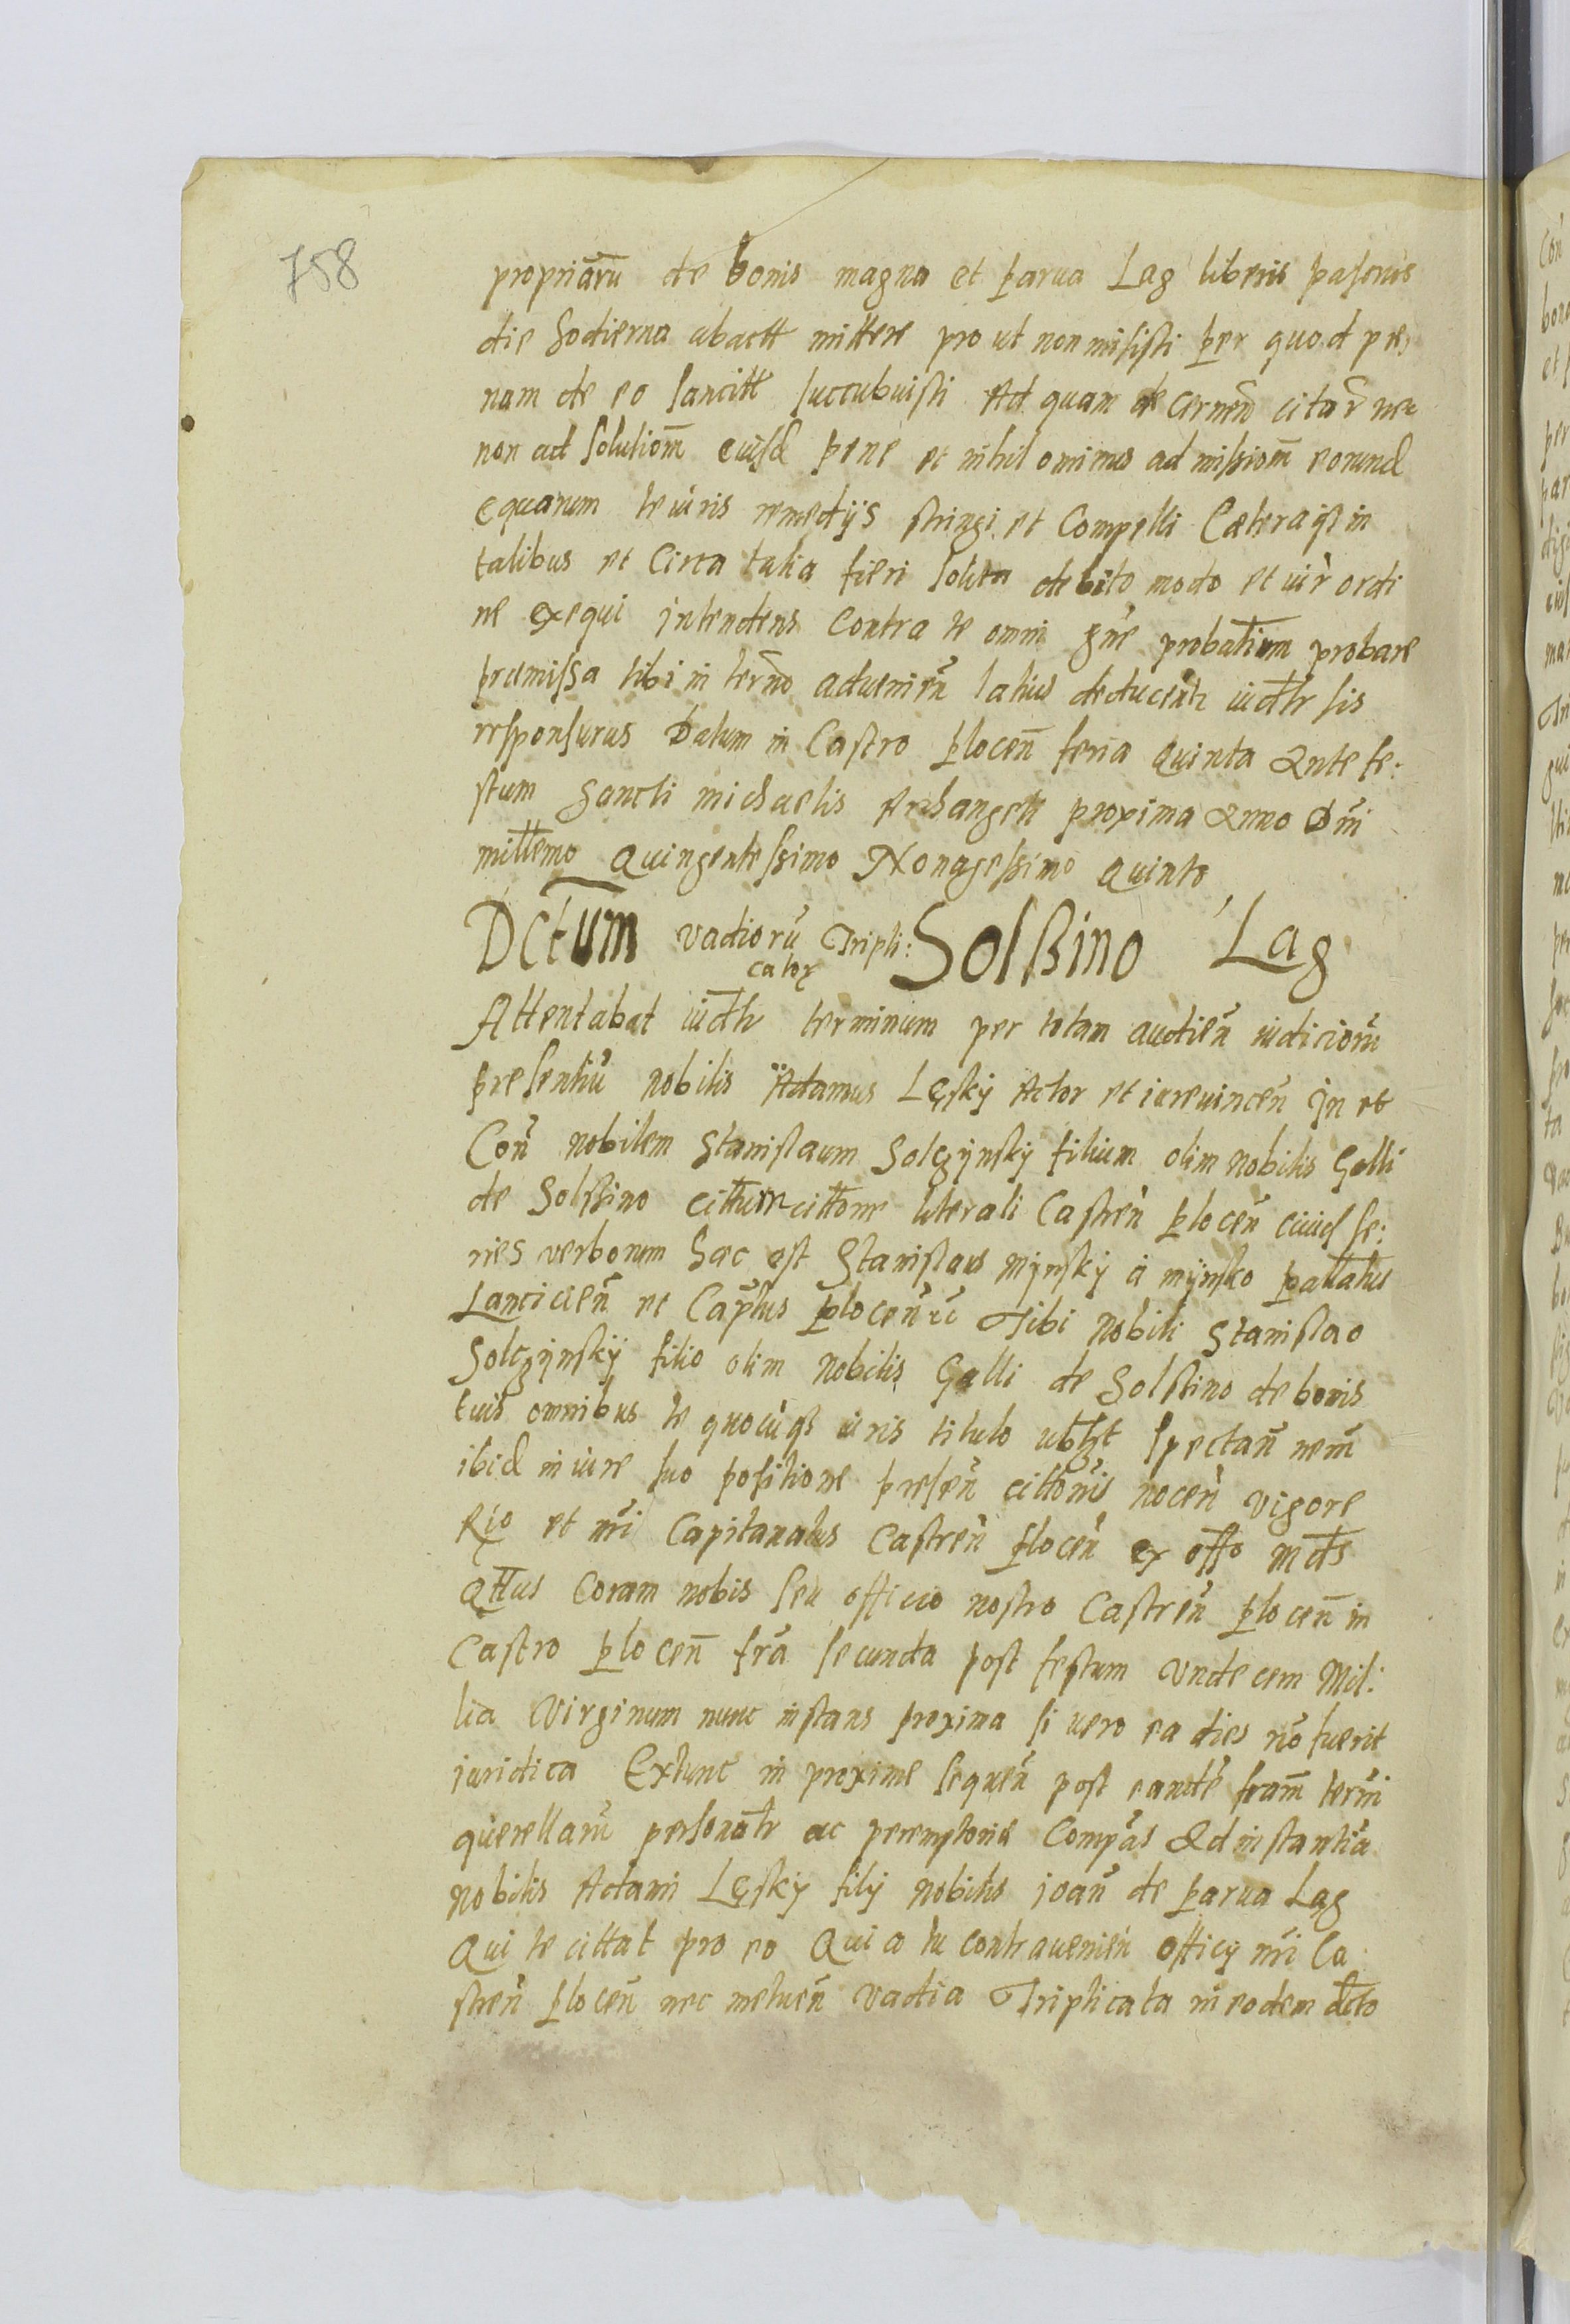 758
propriarū de bonis magna et parua Lag liberis pasonis
die hodierna abactt mittere pro ut non misisti per quod pœ
nam de eo sancitt succubuisti Ad quam decernen̄ citar̄ nec
non ad solutiom̄ eiusd pene et nihil ominus ad missiom̄ eorund
equarum te iuris remedijs stringi et Compelli Cæteraqȝ in
talibus et Circa talia fieri solita debito modo et iur̄ ordi
ne exequi intendens Contra te omni gn̄e probatium probare
præmissa tibi in terno aduenien̄ latius deducentr iudtr sis
responsurus Datum in Castro plocen̄ feria quinta Ante fe:
stum Sancti michaelis Archangeli proxima Anno Dn̄i
millemo quingentessimo Nonagessimo quinto
Dctum vadiorū Tripli: Solßino Lag
catoꝝ
Attentabat iudtr terminum per totam audien̄ iudiciorū
presentiū nobilis Adamus Lęskÿ Actor et iureuincen̄ In et
Con̄ nobilem Stanislaum Solczÿnskÿ filium olim nobilis Galli
de Solßino cittum cittone literali Castren̄ plocen̄ cuius se:
ries verborum hæc est Stanislaus mÿnskÿ à mÿnsko pallatus
Lancicien̄ et Cap̄tus plocen̄ Tibi nobili Stanislao
Solczÿnskÿ filio olim nobilis Galli de Solßino de bonis
tuis omnibus te quocūqȝ iuris titulo ubtȝt spectan̄ nem̄
ibid in iure suo positione presen̄ cittonis nocen̄ vigore
Rio et nr̄i Capitanatus Castren̄ plocen̄ ex offo mdts
qttus Coram nobis seu officio nostro Castren̄ plocen̄ in
Castro plocen̄ fr̄a secunda post festum undecem Mil:
lia Virginum nunc instans proxima si uero ea dies nō fuerit
iuridica Extunc in proxime sequen̄ post eandē fram̄ termi
querellarū personatr ac peremptorie Compas Ad instantiā
nobilis Adami Lęskÿ filÿ nobilis ioan̄ de parua Lag
Qui te cittat pro eo Qui a tu contrauenien̄ officÿ nr̄i Ca
stren̄ plocen̄ nec metuen̄ vadia Triplicata in eodem dcto